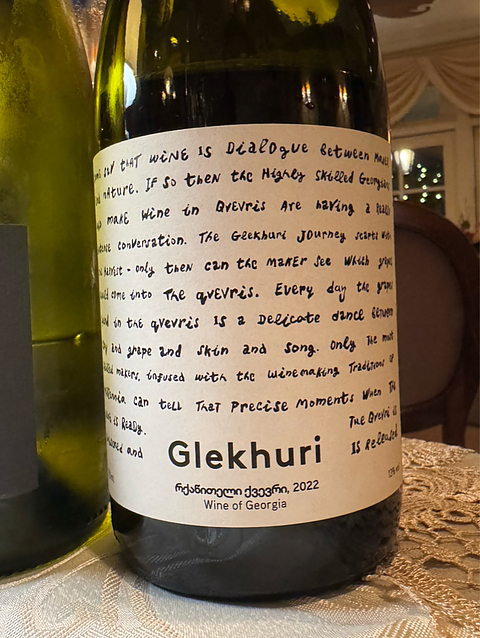 THAT WINE IS Dialogue Between
nature. IF So then the Highly Skilled Georgians
make Wine in Qvevris Are having a Really
conversation. The Glekhuri Journey starts with
harvest - only then can the MAKER See Which grapes
come into The qvevris. Every day the grapes
in the qvevris Is a Delicate dance Between
and grape and Skin and Song. Only The most
makers, infused with the winemaking Traditions of
can tell THAT Precise Moments When The
is Ready. The Qvevri is
and Is Released
Glekhuri
რქაწითელი ქვევრი, 2022
Wine of Georgia
13%